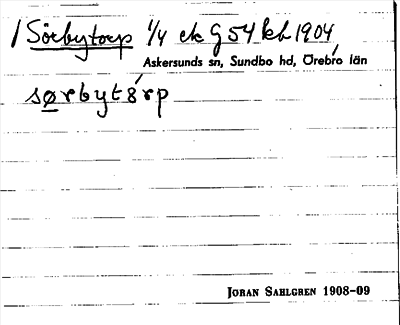 / Sörbytorp 1/4 ek G 54 kb 1904
Askersunds sn, Sundbo hd, Örebro län
sørbytórp
JORAN SAHLGREN 1908-09